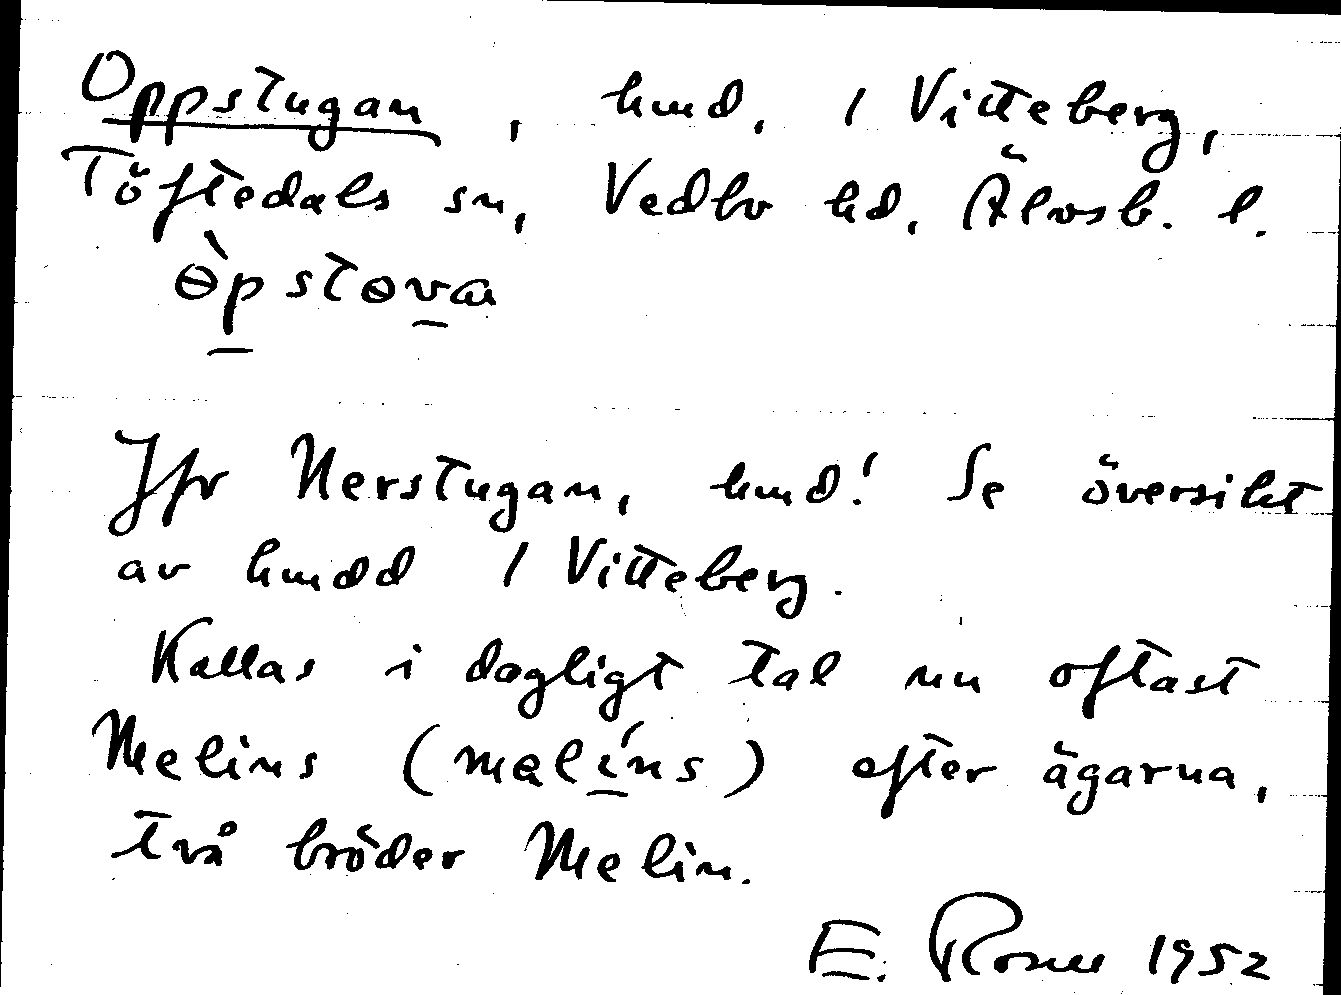 Oppstugan, hmd, 1 Vitteberg,
Töftedals sn, Vedbo hd, Älvsb. l.
ɵ̀pstɵva
Jfr Nerstugan, hmd! Se översikt
av hmdd 1 Vitteberg.
Kallas i dagligt tal nu oftast
Melins (məlíns) efter ägarna,
två bröder Melin.
E. Rosell 1952